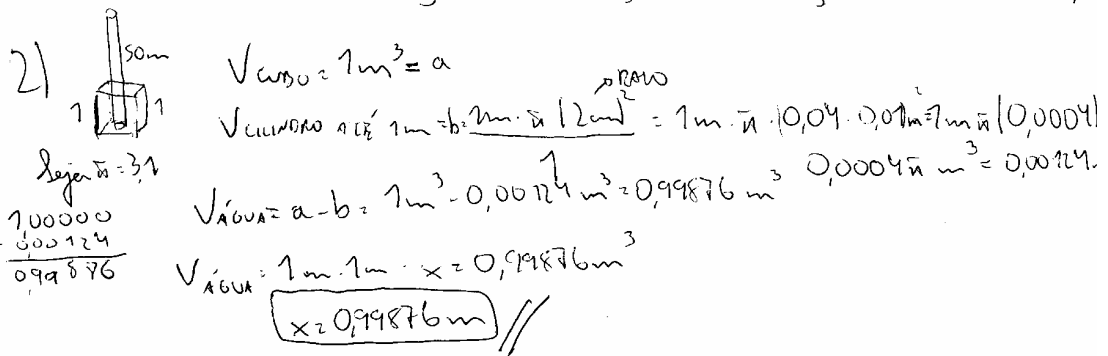 2)
50m
1 1
Seja π = 3,1
1,00000
- 0,00124
0,99876
V CUBO = 1m³ = a
RAIO
V CILINDRO ATÉ 1m = b = 1m · π (2cm)² = 1m · π (0,04 · 0,01)m² = 1m π (0,0004)
1
0,0004π m³ = 0,00124
V ÁGUA = a - b = 1m³ - 0,00124 m³ = 0,99876 m³
V ÁGUA = 1m · 1m · x = 0,99876 m³
x = 0,99876 m